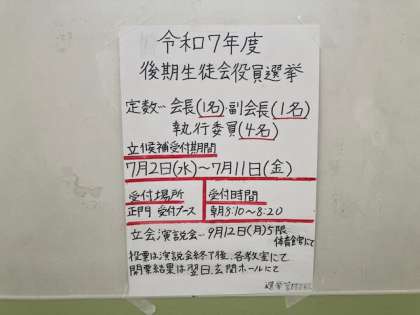 令和7年度
後期生徒会役員選挙
定数… 会長(1名)・副会長(1名)
執行委員(4名)
立候補受付期間
7月2日(水)～7月11日(金)
受付場所
正門 受付ブース
受付時間
朝8:10～8:20
立会演説会…9月12日(月)5限
体育館にて
投票は演説会終了後、各教室にて
開票結果は翌日、玄関ホールにて
選挙管理